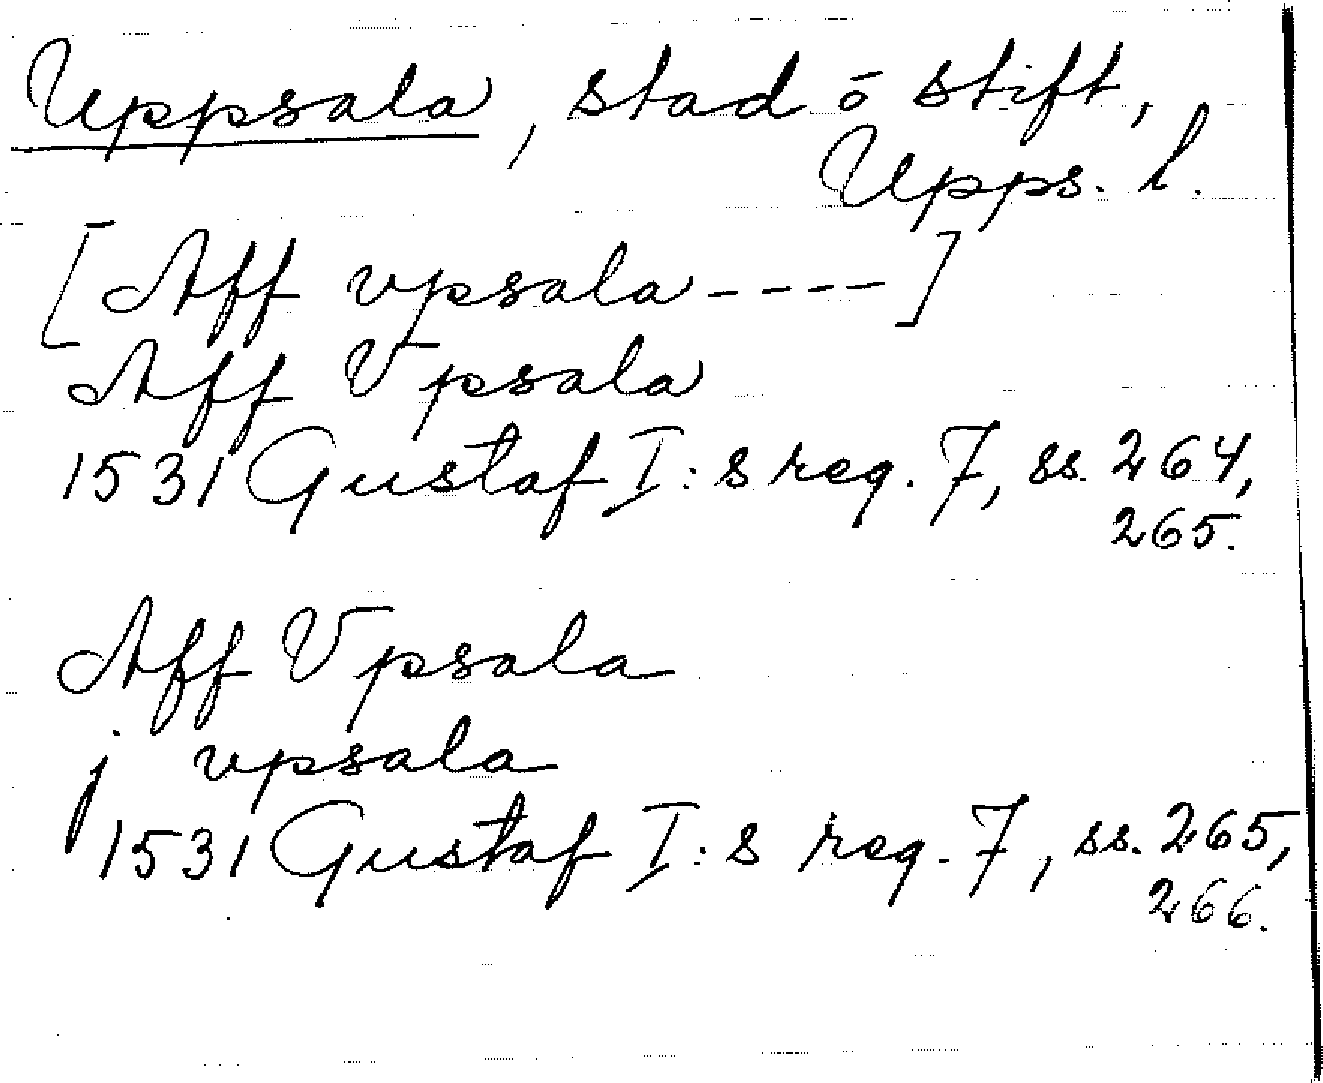 Uppsala, stad ō stift,
Upps. l.
[Aff vpsala ----]
Aff Vpsala
1531 Gustaf I:s reg. 7, ss. 264,
265.
Aff Vpsala
j vpsala
1531 Gustaf I:s reg. 7, ss. 265,
266.